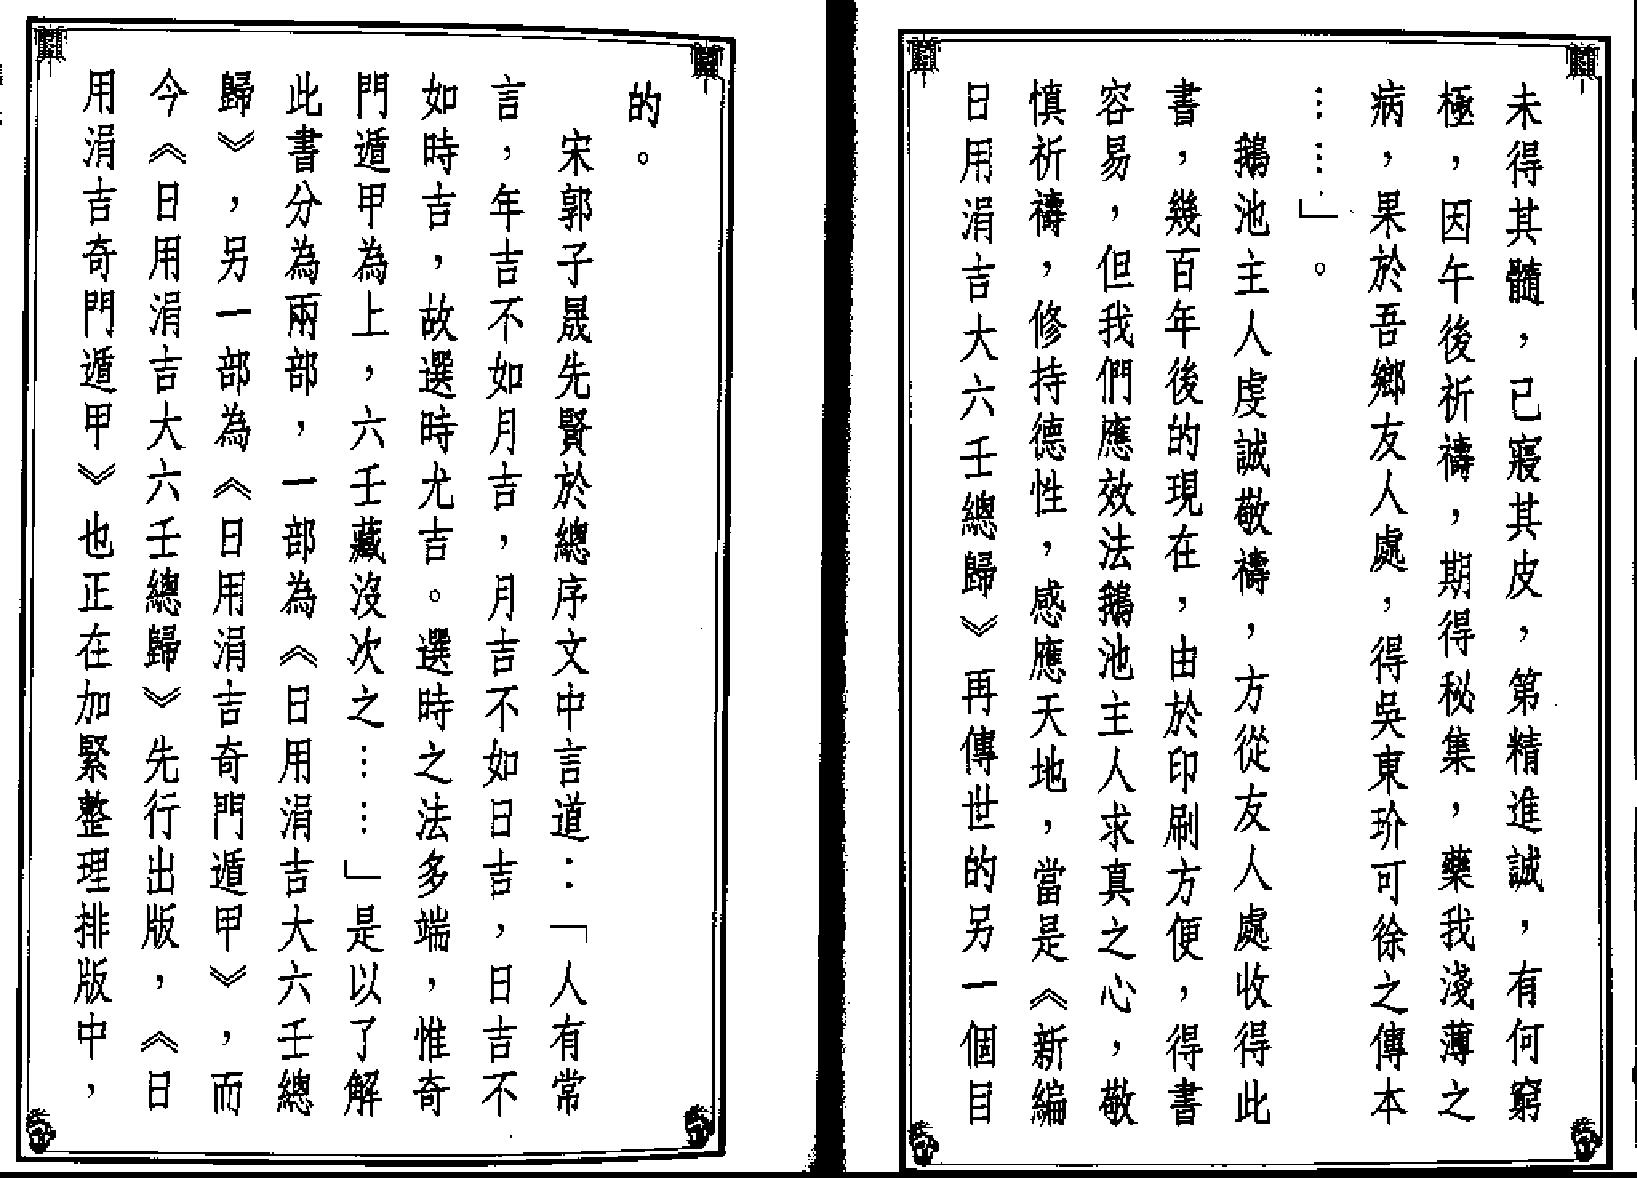 未得其髓，已寢其皮，第精進誠，有何窮
極，因午後祈禱，期得秘集，藥我淺薄之
病，果於吾鄉友人處，得吳東玠可徐之傳本
……」。
鵝池主人虔誠敬禱，方從友人處收得此
書，幾百年後的現在，由於印刷方便，得書
容易，但我們應效法鵝池主人求真之心，敬
慎祈禱，修持德性，感應天地，當是《新編
日用涓吉大六壬總歸》再傳世的另一個目
的。
宋郭子晟先賢於總序文中言道：「人有常
言，年吉不如月吉，月吉不如日吉，日吉不
如時吉，故選時尤吉。選時之法多端，惟奇
門遁甲為上，六壬藏沒次之……」是以了解
此書分為兩部，一部為《日用涓吉大六壬總
歸》，另一部為《日用涓吉奇門遁甲》，而
今《日用涓吉大六壬總歸》先行出版，《日
用涓吉奇門遁甲》也正在加緊整理排版中，